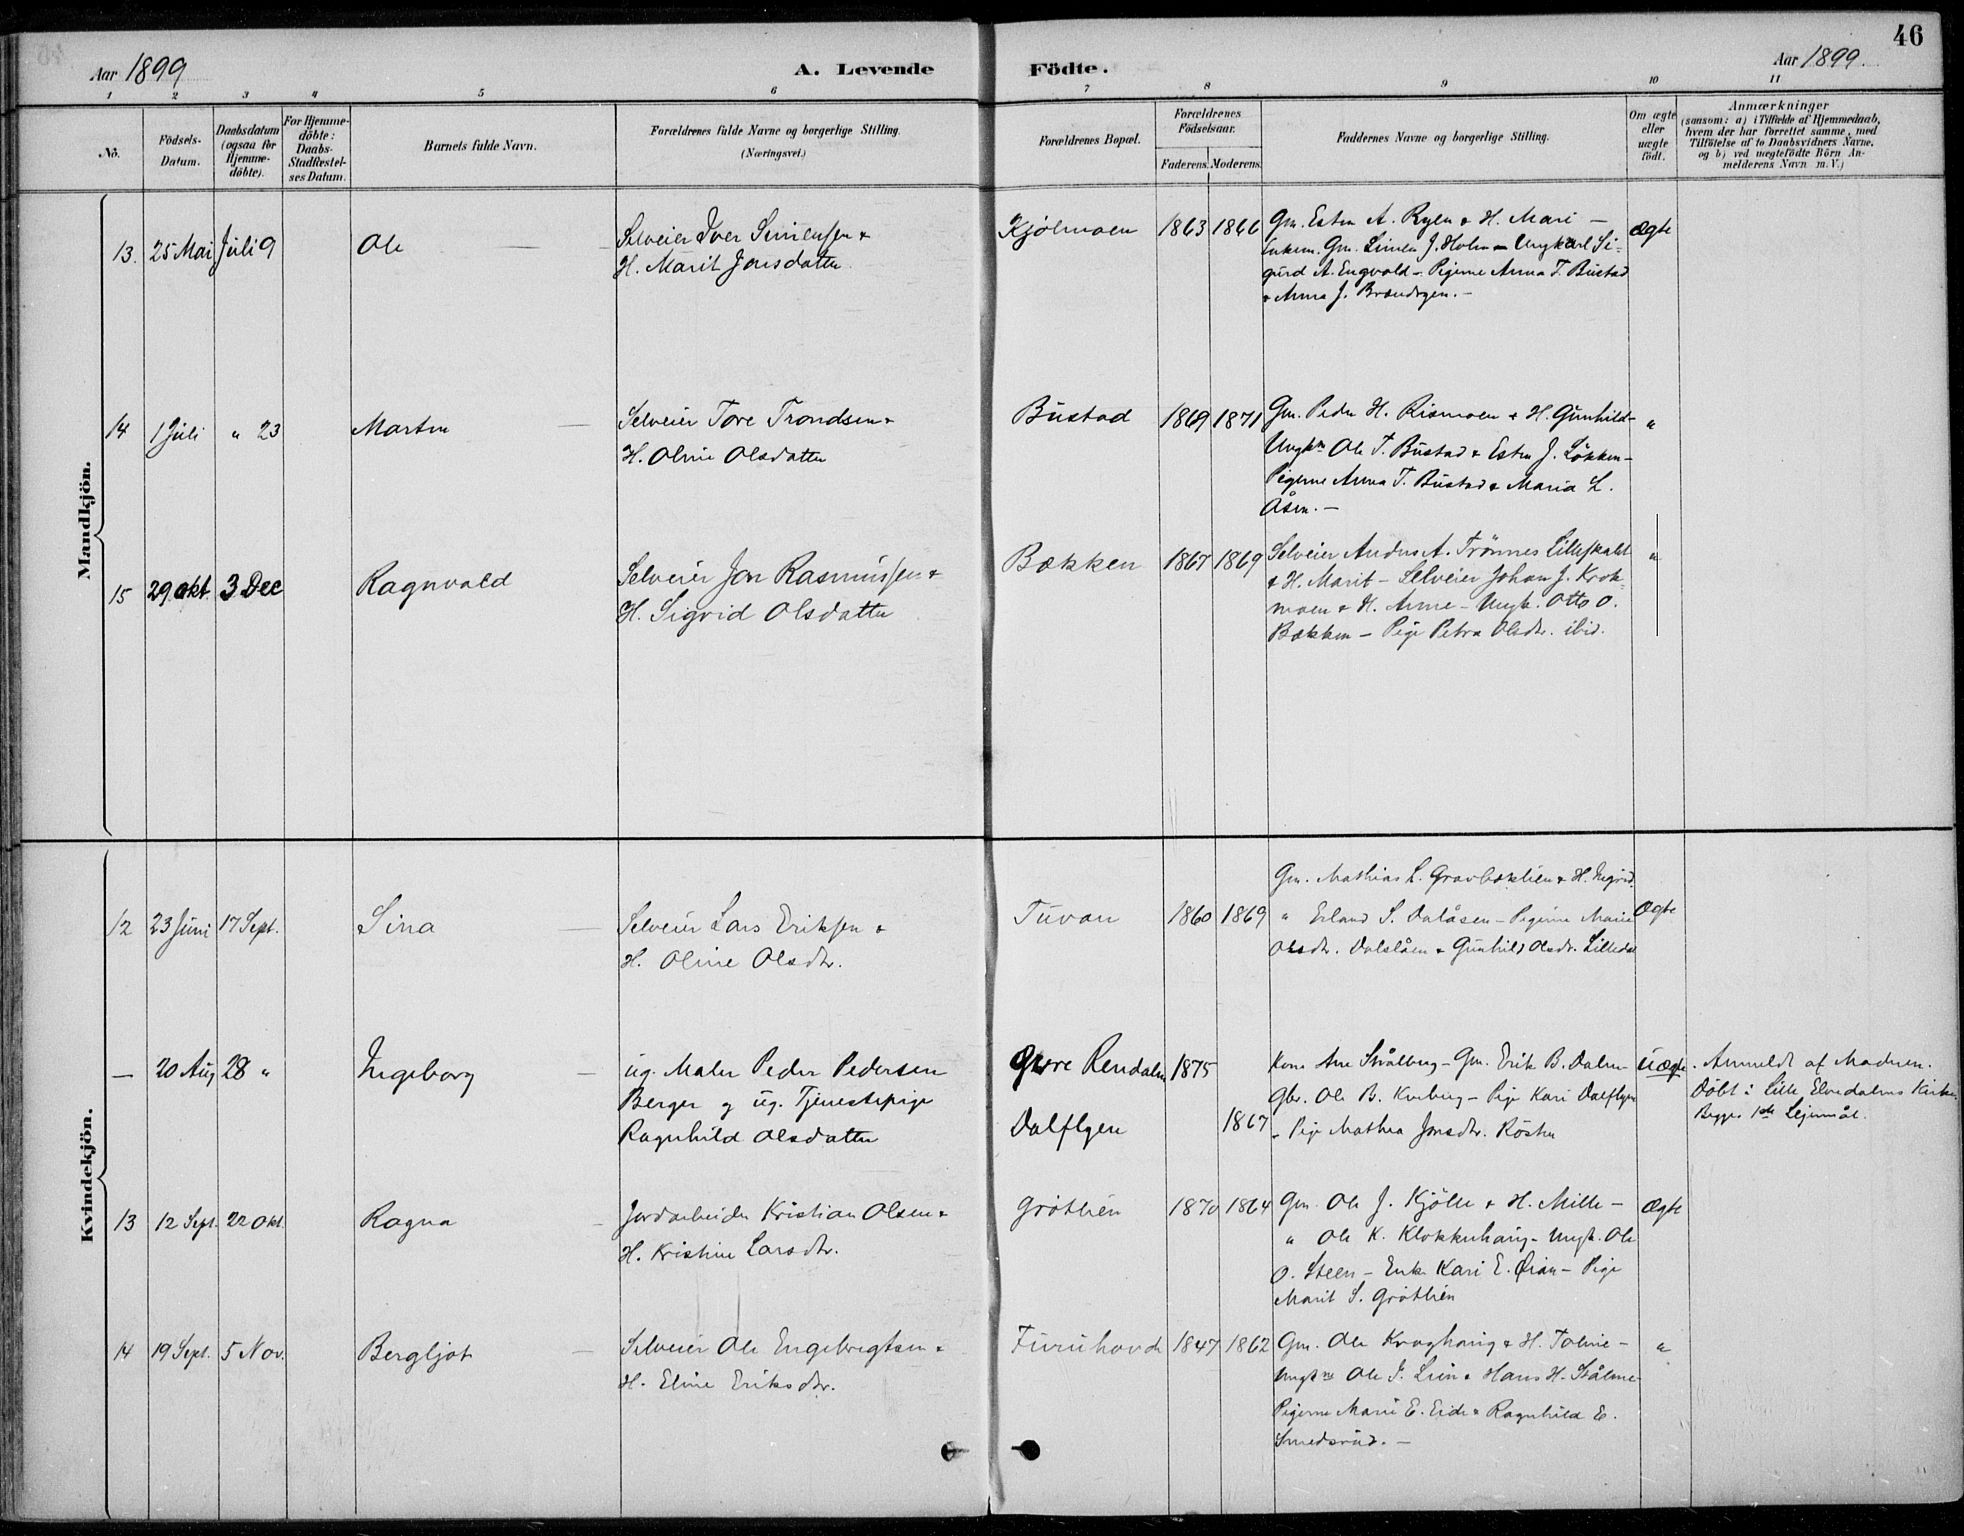 46
Aar 1899
A. Levende
Födte.
Aar 1899.
1 2 3 4 5 6 7 8 9 10 11
No.
Födsels-
Datum.
Daabsdatum
(ogsaa for
Hjemme-
döbte).
For Hjemme-
döbte:
Daabs-
Stadfæstel-
ses Datum.
Barnets fulde Navn.
Forældrenes fulde Navne og borgerlige Stilling.
(Næringsvei.)
Forældrenes Bopæl.
Forældrenes
Födselsaar.
Faderens. Moderens.
Faddernes Navne og borgerlige Stilling.
Om ægte
eller
uægte
födt.
Anmærkninger
(saasom: a) i Tilfælde af Hjemmedaab,
hvem der har forrettet samme, med
Tilföielse af to Daabsvidners Navne,
og b) ved uægtefödte Börn An-
melderens Navn m. V.)
Mandkjön.
13. 25 Mai Juli 9
Ole
Selveier Iver Simensen &
H. Marit Jonsdatter.
Kjølmoen
1863 1866
Gm. Esten A. Ryen & H. Mari –
Enkem. Gm. Simen J. Holm – Ungkarl Si-
gurd A. Engvold – Pigerne Anna T. Bustad
& Anna J. Brændvgen. –
Ægte
14 1 Juli " 23
Martin
Selveier Tore Trondsen &
H. Oline Olsdatter
Bustad
1869 1871
Gm. Peder H. Rismoen & H. Gunhild –
Ungkne Ole T. Bustad & Esten J. Løkken –
Pigerne Anna T. Bustad & Maria L.
Åsen. –
"
15 29 Okt. 3 Dec
Ragnvald
Selveier Jon Rasmussen &
H. Sigrid Olsdatter
Bækken
1867 1869
Selveier Anders A. Trønnes Lilleskalet
& H. Marit – Selveier Johan J. Krok-
moen & H. Anne – Ungk. Otto O.
Bækken – Pige Petra Olsdtr. ibid.
"
Kvindekjön.
12 23 Juni 17 Sept.
Sina
Selveier Lars Eriksen &
H. Oline Olsdtr.
Tuvan
1860 1869
Gm. Mathias L. Gravbæklien & H. Ingrid.
" Erland S. Dalåsen – Pigerne Marie
Olsdtr. Dalslåen & Gunhild Olsdtr. Lilledal
Ægte
– 20 Aug 28 "
Ingeborg
ug. Maler Peder Pedersen
Berger og ug. Tjenestepige
Ragnhild Olsdatter
Øvre Rendalen
Dalflyen
1875
1867
Kone Ane Strålberg – Gm. Erik B. Dalen –
Gbr. Ole B. Kveberg – Pige Kari Dalflyen
– Pige Mathea Jonsdtr. Rösten
Uægte
Anmeldt af Madren.
Döbt i Lille Elvedalens Kirke.
Begges 1ste Lejermål.
13 12 Sept. 22 Okt.
Ragna
Jordarbeider Kristian Olsen &
H. Kristine Larsdtr.
Grøtlien
1870 1864
Gm. Ole J. Kjölle & H. Mille –
" Ole K. Klokkerhaug – Ungk. Ole
O. Steen – Enke Kari E. Øian – Pige
Marit S. Grøtlien
Ægte
14 19 Sept. 5 Nov.
Bergljot
Selveier Ole Engebregtsen &
H. Eline Eriksdtr.
Furuhovde
1847 1862
Gm. Ole Kroghaug & H. Toline –
Ungkne Ole J. Lien & Hans H. Stålme –
Pigerne Marie E. Eide & Ragnhild E.
Smedsrud. –
"